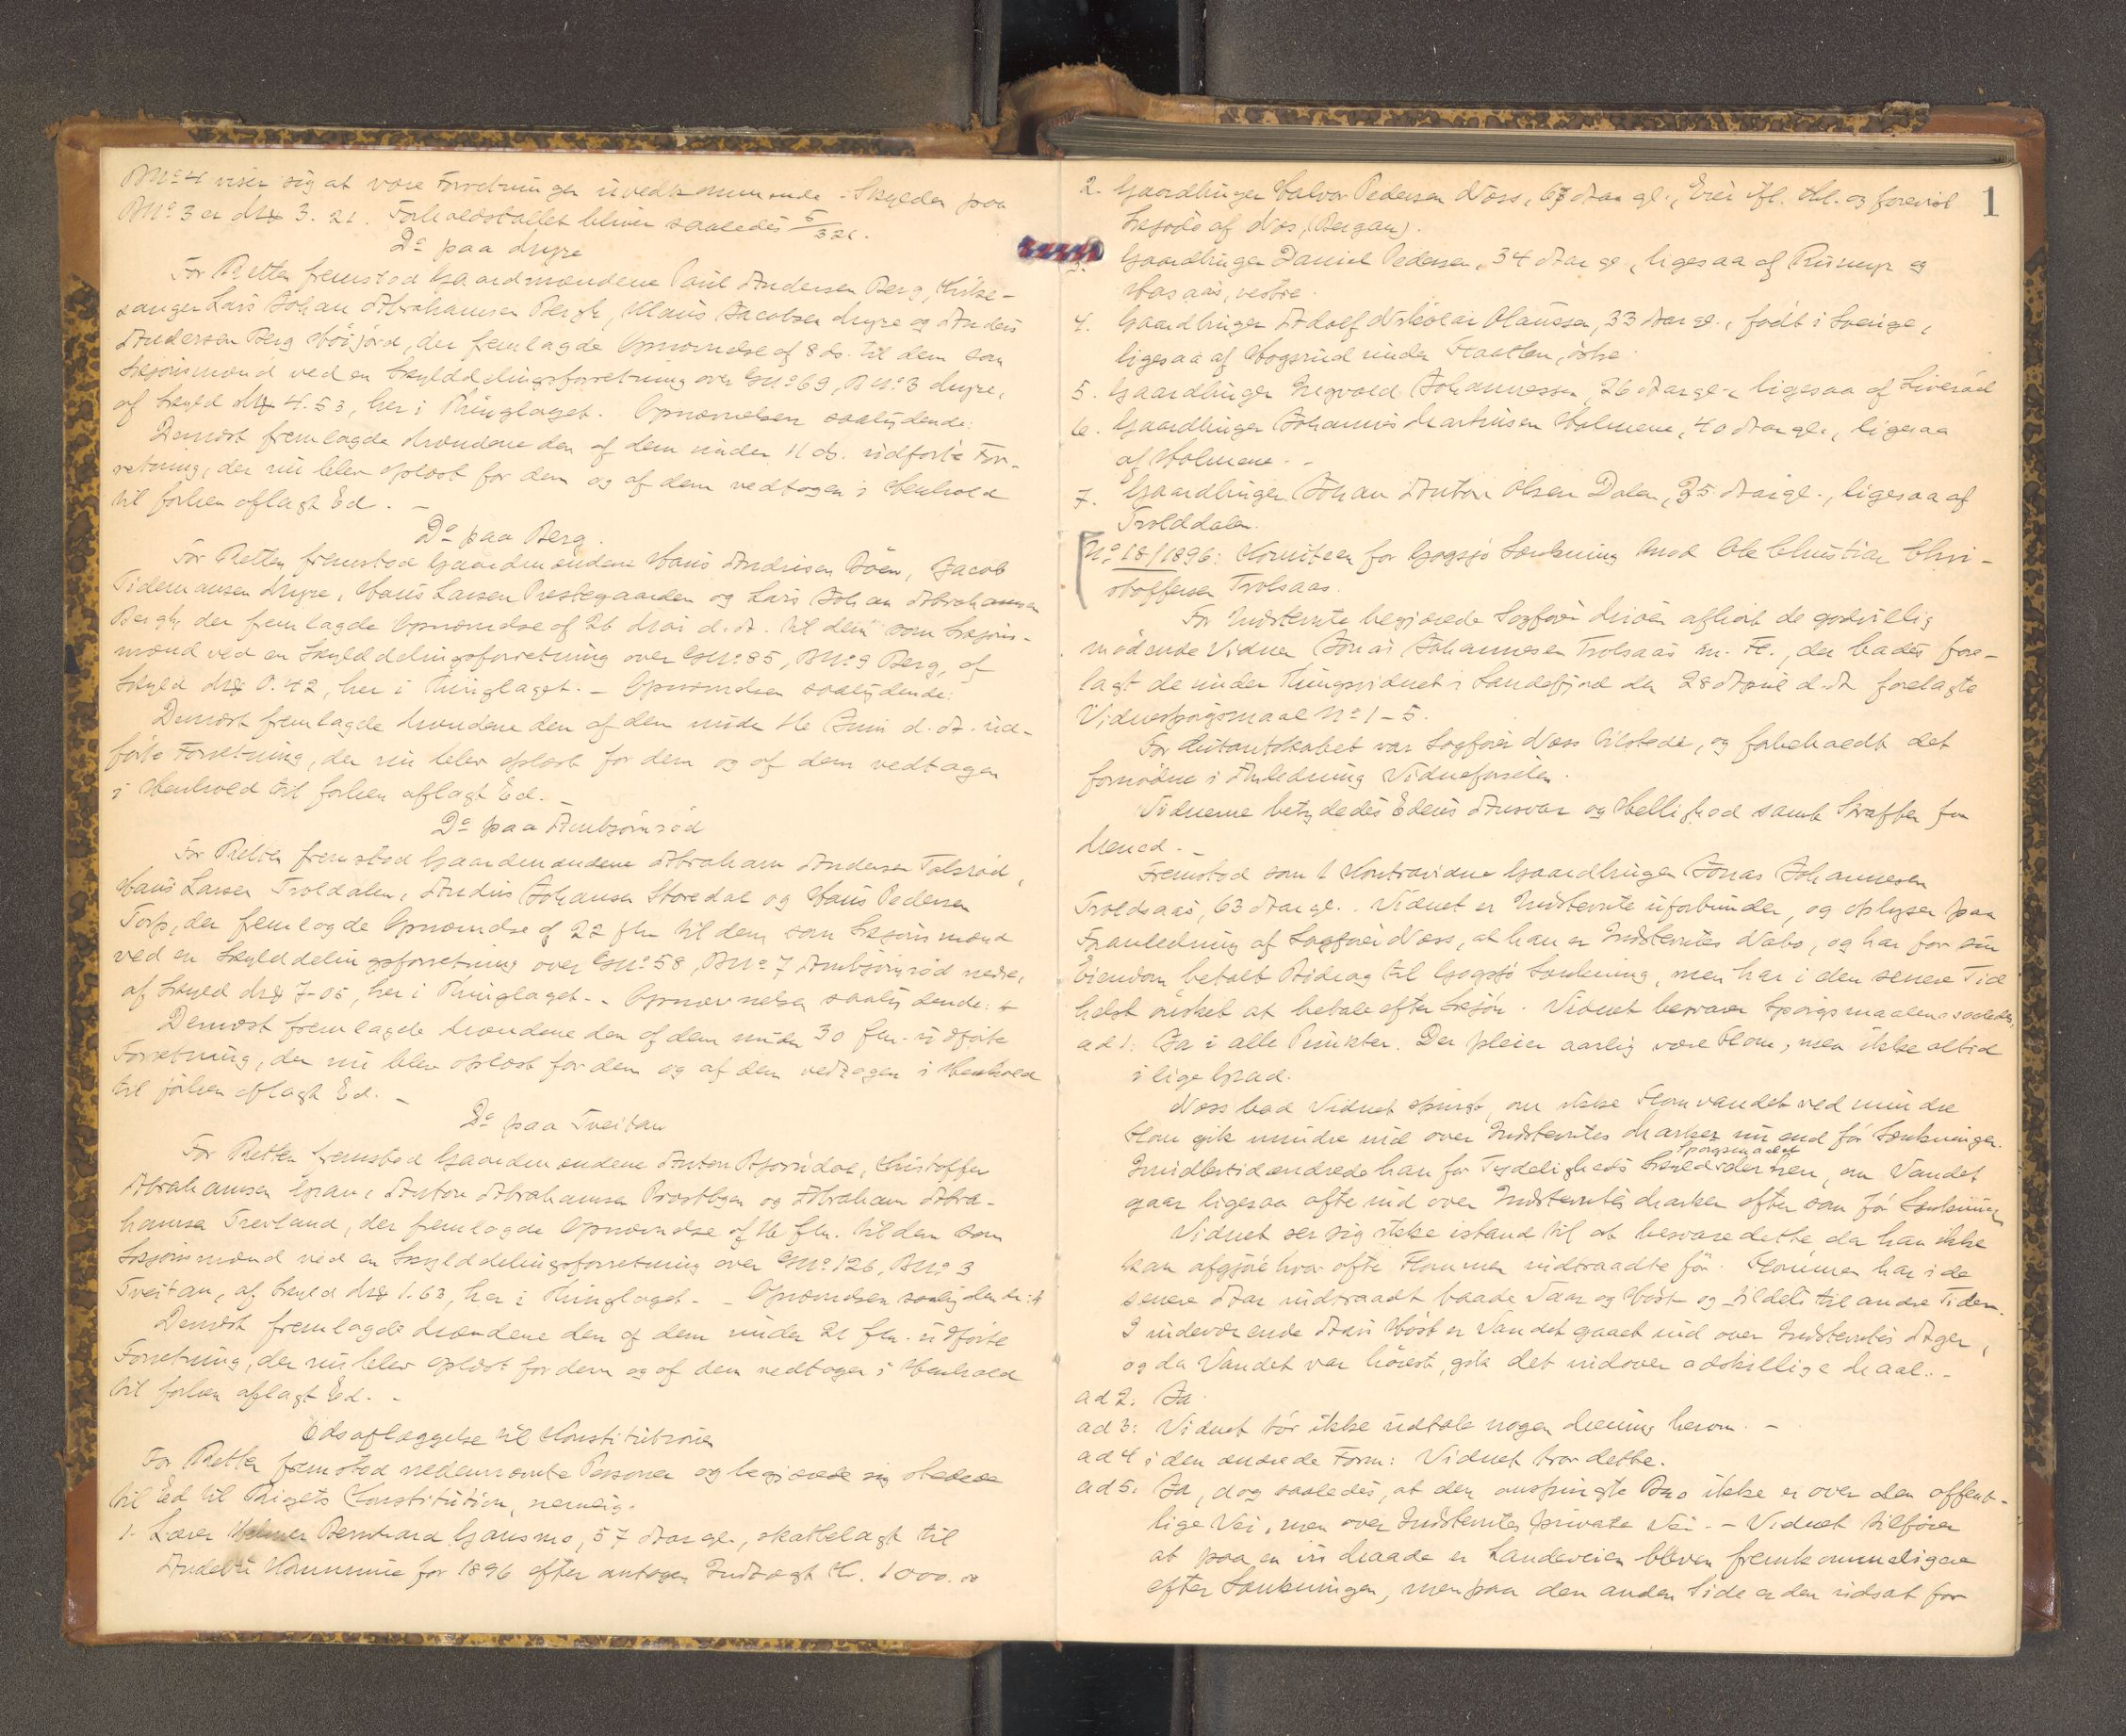 BNo 4 viser sig at være Forretningen uvedkommende. Skylden paa
BNo 3 er Mrk 3.21. Forholdstallet bliver saaledes 5/321.
Do paa Myre
For Retten fremstod Gaardmændene Paul Andersen Berg, Kirke-
sanger Lars Johan Abrahamsen Bergh, Klaus Jacobsen Myre og Anders
Andersen Berg Høijord, der fremlagde Opnævnelse af 8 ds. til dem som
Skjønsmænd ved en Skylddelingsforretning over GNo 69, BNo 3 Myre,
af Skyld Mrk 4.53, her i Thinglaget. Opnævnelsen saalydende:
Dernæst fremlagde Mændene den af dem under 11 ds. udførte For-
retning, der nu blev oplæst for dem og af dem vedtagen i Henhold
til forhen aflagt Ed. -
Do paa Berg.
For Retten fremstod Gaardmændene Hans Andersen Bøen, Jacob
Tidemansen Myre, Hans Larsen Prestegaarden og Lars Johan Abrahamsen
Bergh, der fremlagde Opnævnelse af 26 Mai d. A. til dem som Skjøns-
mænd ved en Skylddelingsforretning over GNo 85, BNo 9 Berg, af
Skyld Mrk 0.42, her i Thinglaget. - Opnævnelsen saalydende:
Dernæst fremlagde Mændene den af dem under 16 Juni d. A. ud-
førte Forretning, der nu blev oplæst for dem og af dem vedtagen
i Henhold til forhen aflagt Ed. -
Do paa Ambjørnrød
For Retten fremstod Gaardmændene Abraham Andersen Tolsrød,
Hans Larsen Troldalen, Andreas Johansen Storedal og Hans Pedersen
Torp, der fremlagde Opnævnelse af 22 f.M. til dem som Skjønsmænd
ved en Skylddelingsforretning over GNo 58, BNo 7 Ambjørnrød nedre,
af Skyld Mrk 7-05, her i Thinglaget. - Opnævnelsen saalydende:
Dernæst fremlagde Mændene den af dem under 30 f.M. udførte
Forretning, der nu blev oplæst for dem og af dem vedtagen i Henhold
til forhen aflagt Ed. -
Do paa Tveitan
For Retten fremstod Gaardmændene Anton Bjørndal, Christoffer
Abrahamsen Gran, Anton Abrahamsen Prestbyen og Abraham Abra-
hamsen Trevland, der fremlagde Opnævnelse af 16 f.M. til dem som
Skjønsmænd ved en Skylddelingsforretning over GNo 126, BNo 3
Tveitan, af Skyld Mrk 1.63, her i Thinglaget. - Opnævnelsen saalydende:
Dernæst fremlagde Mændene den af dem under 21 f.M. udførte
Forretning, der nu blev oplæst for dem og af dem vedtagen i Henhold
til forhen aflagt Ed. -
Edsaflæggelse til Konstitutionen
For Retten fremstod nedennævnte Personer og begjærede sig stedede
til Ed til Rigets Konstitution, nemlig:
1. Lærer Bernhard Gausmo, 57 Aar gl., skattelagt til
Andebu Kommune for 1896 efter antagen Indtægt Kr. 1000.00
1
2. Gaardbruger Halvor Pedersen Næss, 67 Aar gl., Eier ifl. thl. og forevist
Skjøde af Næs, (Bergan).
3. Gaardbruger Daniel Pedersen, 34 Aar gl., ligesaa af og
Hasaas, vestre.
4. Gaardbruger Adolf Nikolai Olaussen, 33 Aar gl., født i Sverige,
ligesaa af Hogsrud under Haatten, østre.
5. Gaardbruger Ingvald Johannessen, 26 Aar gl., ligesaa af Liverød
6. Gaardbruger Johannes Martinsen Holmene, 40 Aar gl., ligesaa
af Holmene. -
7. Gaardbruger Johan Anton Olsen Dalen, 35 Aar gl., ligesaa af
Trolddalen.
No 18/1896: Komiteen for Gogsjø Sænkning mod Ole Christian Chri-
stoffersen Trolsaas.
For Indstevnte begjærede Sagfører afhørt de godvillig
mødende Vidner Jonas Johannesen Trolsaas m. Fl., der bades fore-
lagt de under Thingsvidnet i Sandefjord den 28 April d. A. forelagte
Vidnespørgsmaal No 1-5.
For Citantskabet var Sagfører Næss tilstede, og forbeholdt det
fornødne i Anledning Vidneførselen.
Vidnerne betydedes Edens Ansvar og Hellighed samt Straffen for
Mened. -
Fremstod som 1 Kontravidne Gaardbruger Jonas Johannesen
Troldsaas, 63 Aar gl. Vidnet er Indstevnte uforbunden, og oplyser paa
Foranledning af Sagfører Næss, at han er Indstevntes Nabo, og har for sin
Eiendom betalt Bidrag til Gogsjø Sænkning, men har i den senere Tid
helst ønsket at betale efter Skjøn. Vidnet besvarer Spørgsmaalene saaledes:
ad 1: Ja i alle Punkter. Der pleier aarlig være Flom, men ikke altid
i lige Grad.
Næss bad Vidnet spurgt, om ikke Flomvandet ved mindre
Flom gik mindre ind over Indstevntes Marker nu end før Sænkningen.
Imidlertid ændrede han for Tydeligheds Skyld Spørgsmaalet derhen, om Vandet
gaar ligesaa ofte ind over Indstevntes Marker efter som før Sænkningen
Vidnet ser sig ikke istand til at besvare dette da han ikke
kan afgjøre hvor ofte Flommen indtraadte før. Flommen har i de
senere Aar indtraadt baade Vaar og Høst og tildels til andre Tider.
I indeværende Aars Høst er Vandet gaaet ind over Indstevntes Ager,
og da Vandet var høiest, gik det indover adskillige Maal. -
ad 2: Ja
ad 3: Vidnet tør ikke udtale nogen Mening herom. -
ad 4 i den ændrede Form: Vidnet tror dette.
ad 5: Ja, dog saaledes, at den omspurgte Bro ikke er over den offent-
lige Vei, men over Indstevntes private Vei. - Vidnet tilføier
at paa en vis Maade er Landeveien bleven fremkommeligere
efter Sænkningen, men paa den anden Side er den udsat for